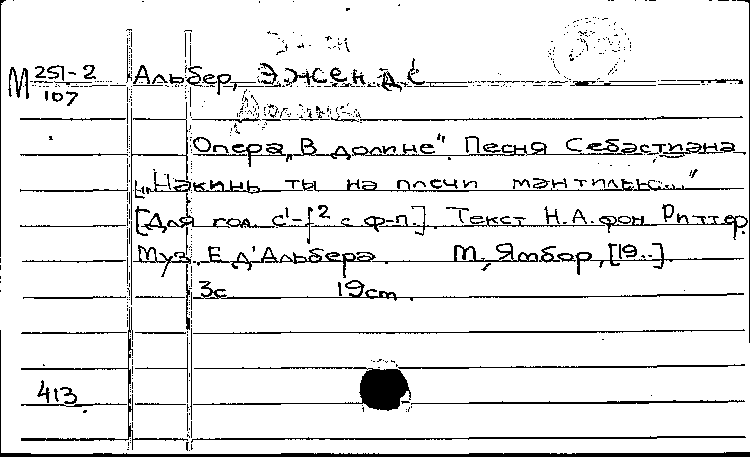 M 251-2 Альбер, Эжен д'
107
Долина
Опера „В долине". Песня Себастиана
„Накинь ты на плечи мантилью..."
[Для гол. c¹-f² с ф-п.]. Текст Н.А. фон Риттер.
Муз. Е д'Альбера. М, Ямбор, [19..].
3с 19см.
413.